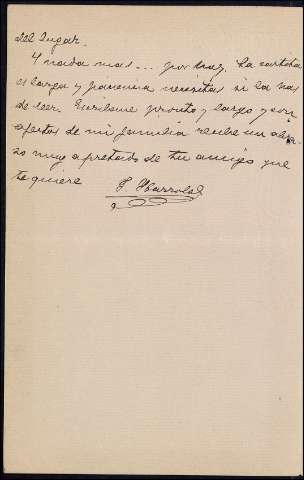 del lugar.
Y nada mas... por hoy. La cartita
es larga y paciencia necesitas si la has
de leer. Escribeme pronto y largo y con
afectos de mi familia recibe un abra-
zo muy apretado de tu amigo que
te quiere
F. Ibarrola